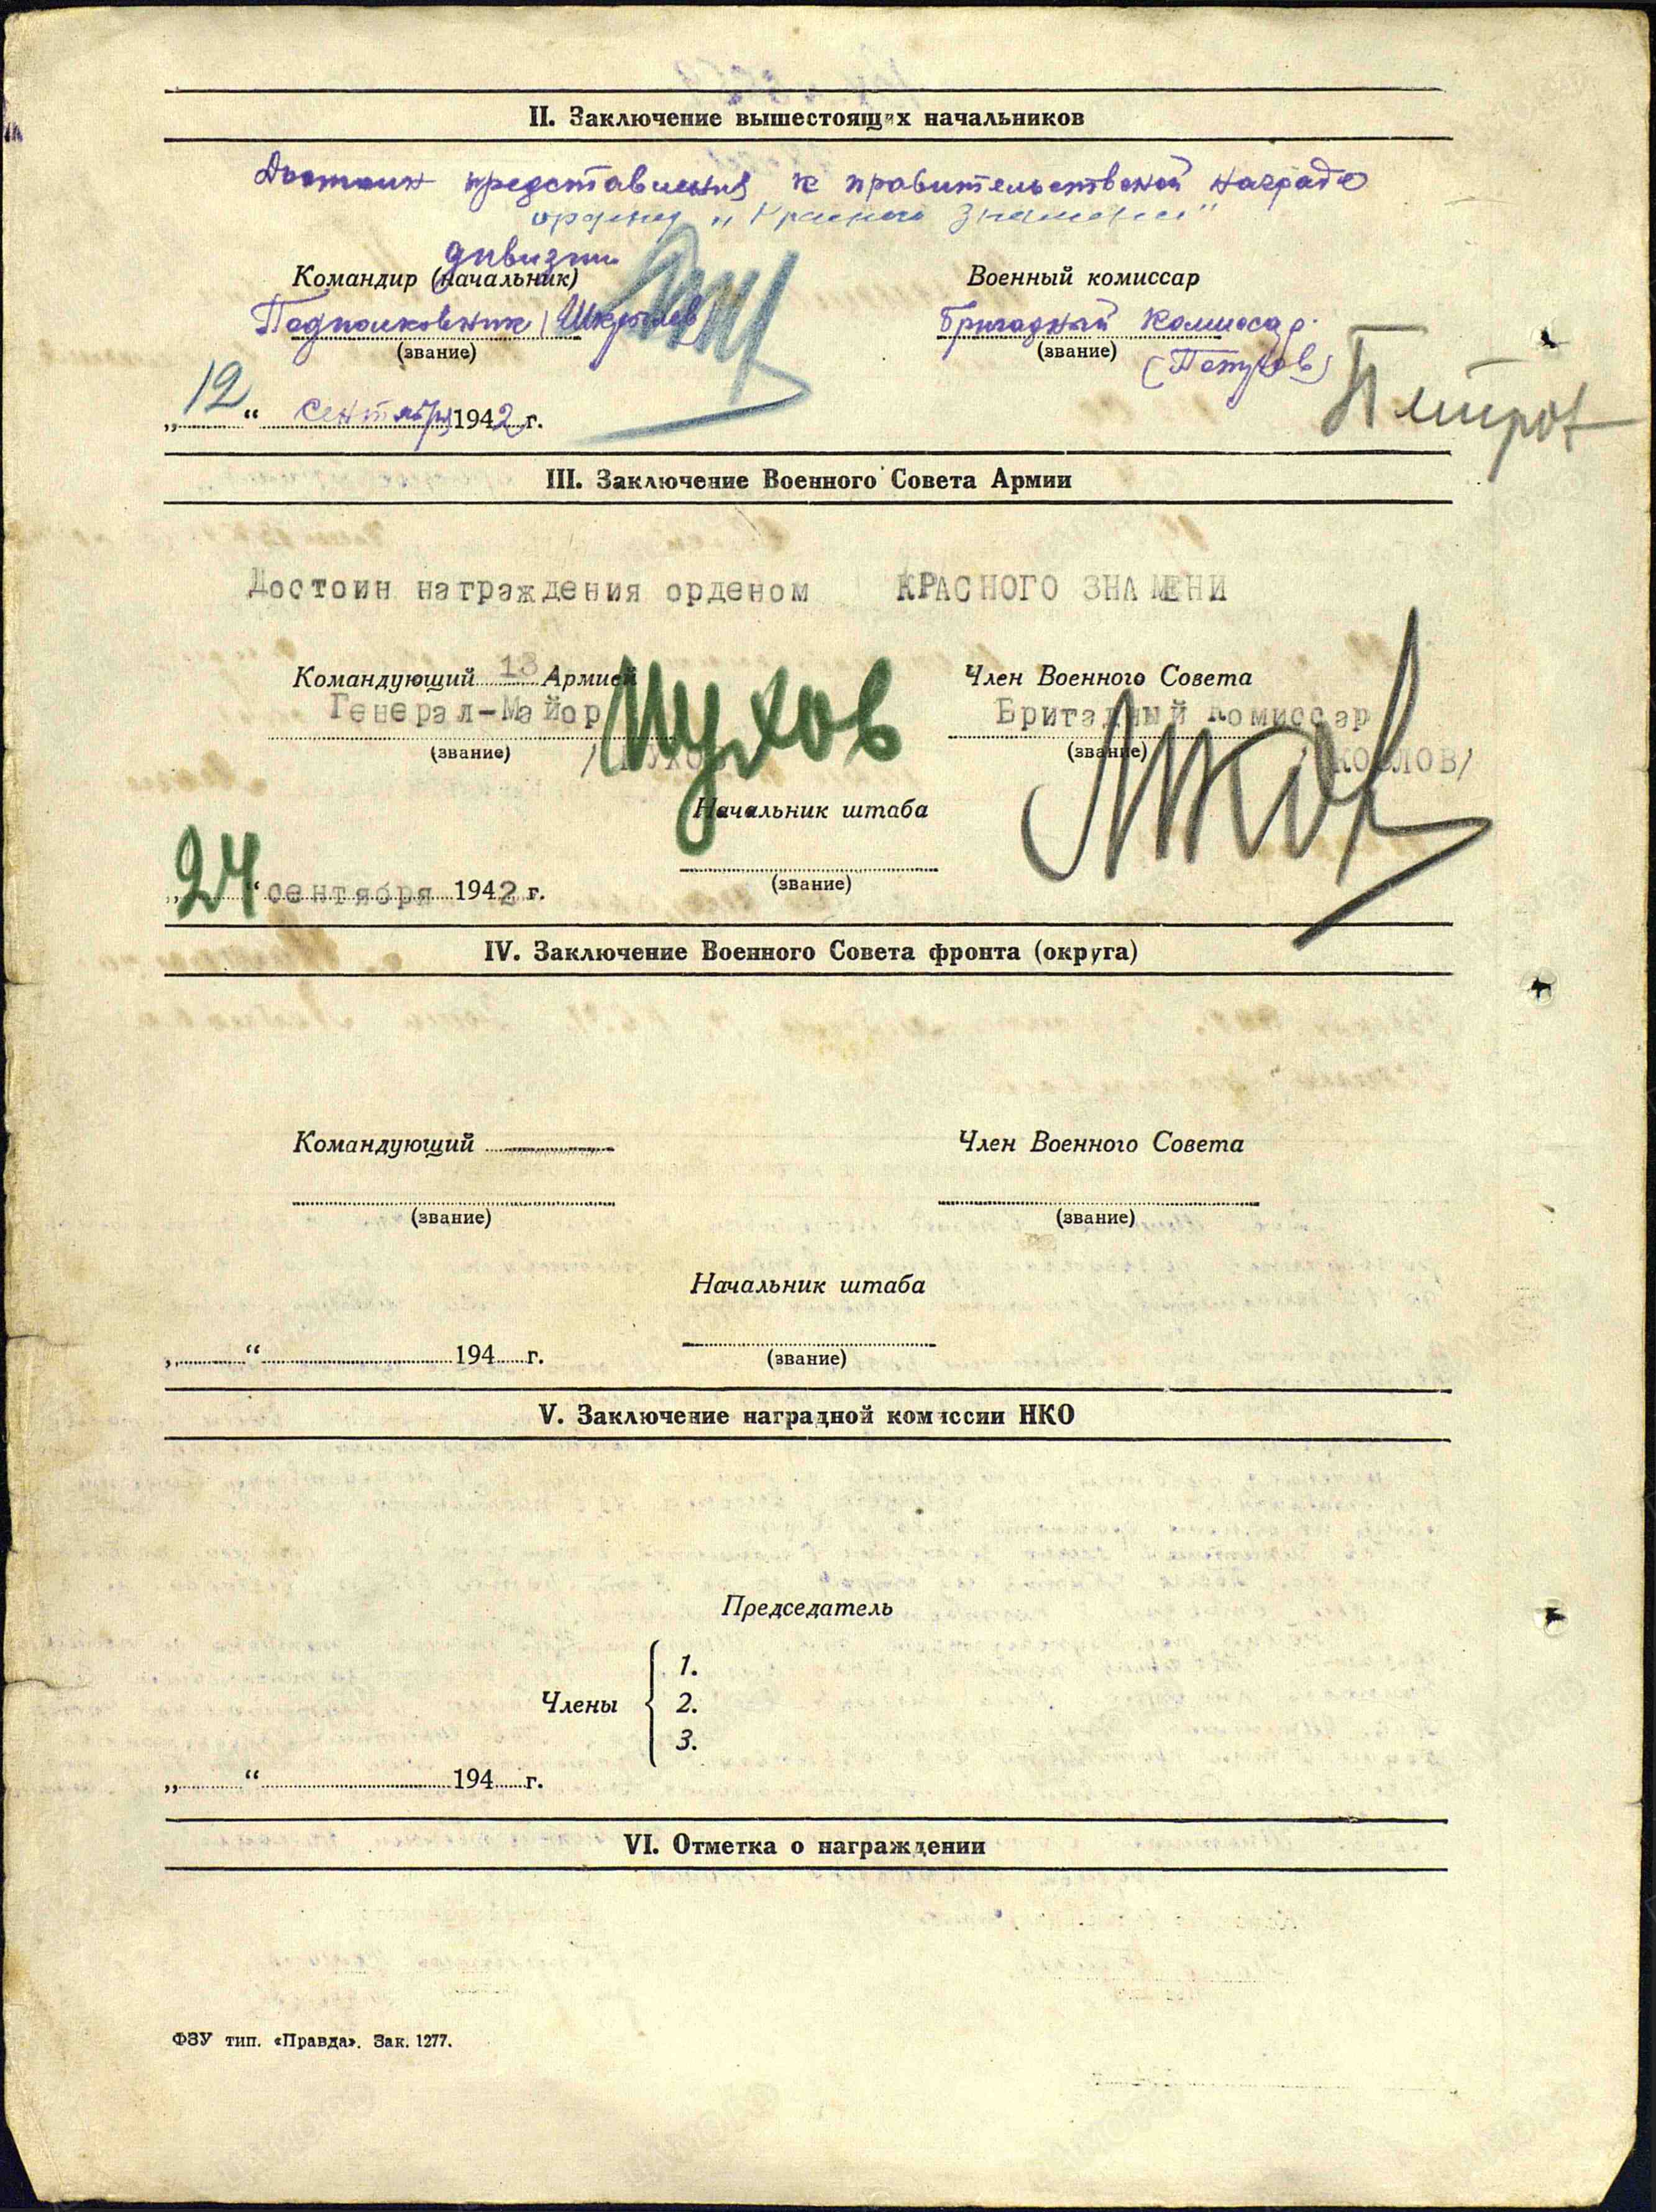 II. Заключение вышестоящих начальников
Достоин представления к правительственной награде
ордену „Красного Знамени"
дивизии
Командир (начальник) Военный комиссар
Подполковник Бригадный комиссар
(звание) (звание) (Петров)
Петров
„12“ сентября 1942 г.
III. Заключение Военного Совета Армии
Достоин награждения орденом КРАСНОГО ЗНАМЕНИ
Командующий 13 Армией Член Военного Совета
Генерал-Майор Пухов Бригадный Комиссар
(звание) /ПУХОВ (звание) /КОЗЛОВ/
Начальник штаба
(звание)
„24“ сентября 1942 г.
IV. Заключение Военного Совета фронта (округа)
Командующий Член Военного Совета
(звание) (звание)
Начальник штаба
„ “ 194 г. (звание)
V. Заключение наградной комиссии НКО
Председатель
1.
Члены 2.
3.
„ “ 194 г.
VI. Отметка о награждении
ФЗУ тип. «Правда». Зак. 1277.